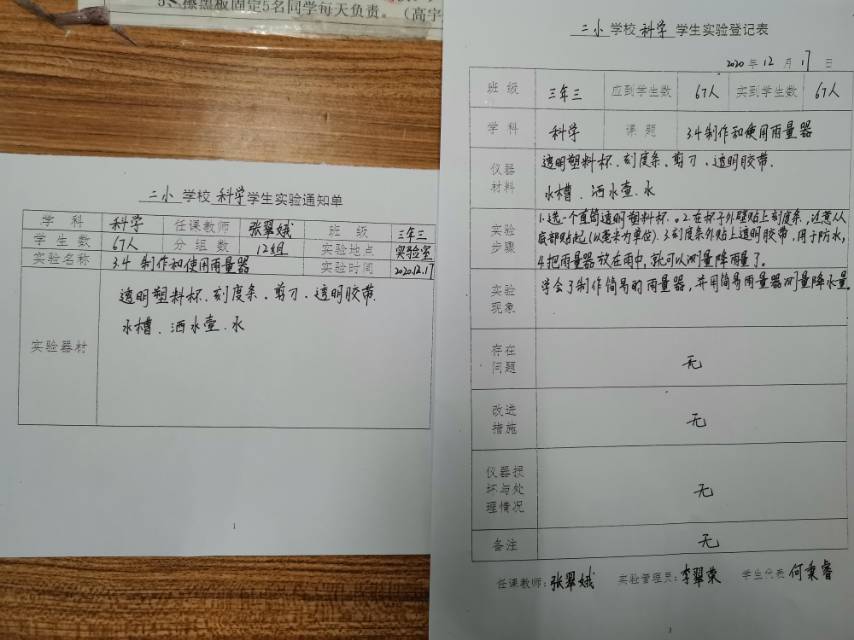 5、擦黑板固定5名同学每天负责。（高宇
二小 学校 科学 学生实验通知单
学 科 科学 任课教师 张翠娥 班 级 三年三
学 生 数 67人 分 组 数 12组 实验地点 实验室
实验名称 3.4 制作和使用雨量器 实验时间 2020.12.17
实验器材
透明塑料杯、刻度条、剪刀、透明胶带
水槽、洒水壶、水
1
二小 学校 科学 学生实验登记表
2020 年 12 月 17 日
班 级 三年三 应到学生数 67人 实到学生数 67人
学 科 科学 课 题 3.4制作和使用雨量器
仪器材料
透明塑料杯、刻度条、剪刀、透明胶带、
水槽、洒水壶、水
实验步骤
1.选一个直筒透明塑料杯。2.在杯子外壁贴上刻度条,注意从
底部贴起(以毫米为单位).3.刻度条外贴上透明胶带,用于防水,
4.把雨量器放在雨中,就可以测量降雨量了。
实验现象
学会了制作简易的雨量器,并用简易雨量器测量降水量
存在问题 无
改进措施 无
仪器损坏与处理情况 无
备注 无
任课教师:张翠娥 实验管理员:李翠荣 学生代表:何秉睿